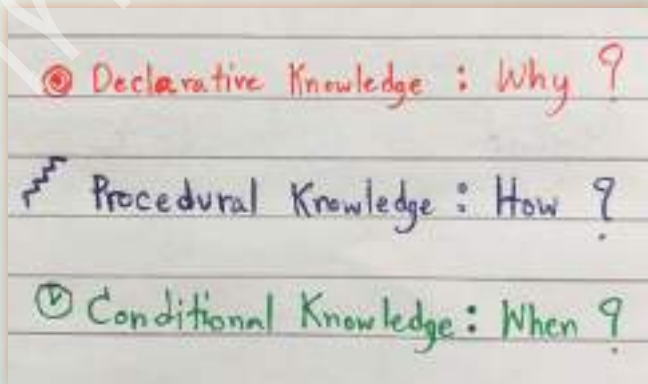 Declarative Knowledge : Why ?
Procedural Knowledge : How ?
Conditional Knowledge : When ?